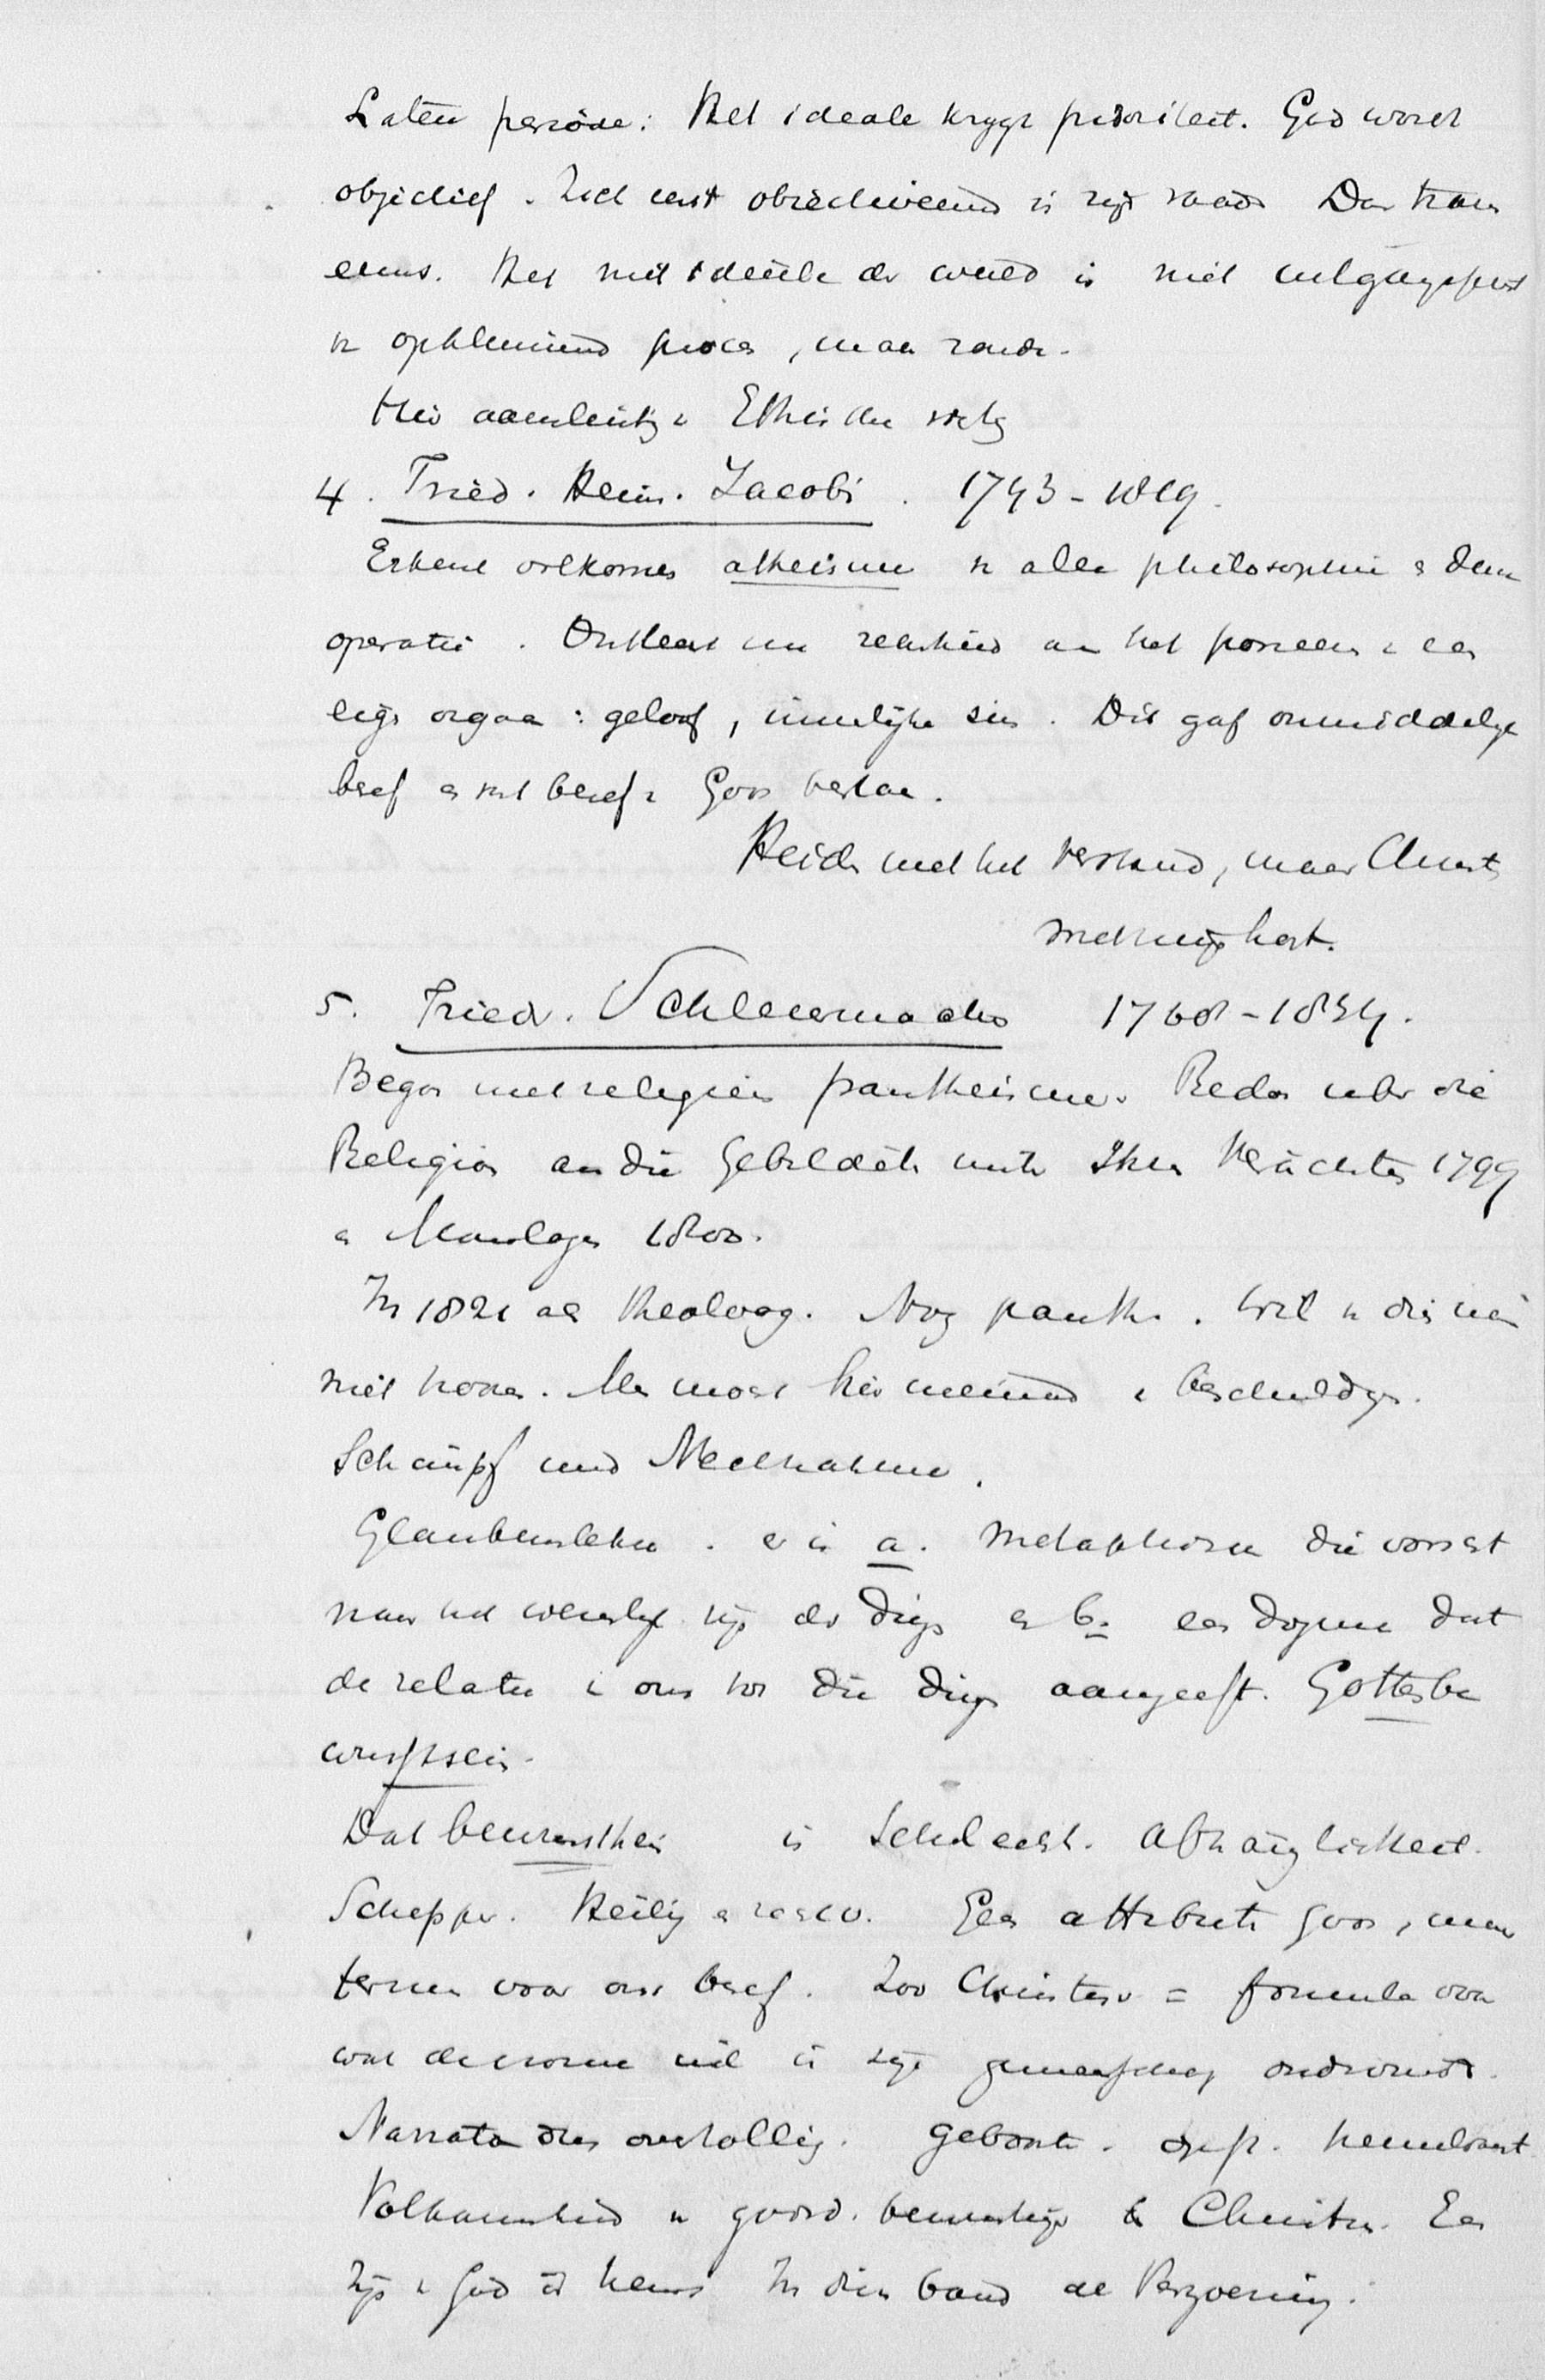 Latere periode: Het ideale krygt prioriteit. God wordt
objectief. Zich eerst objectiveerend is zijn
Het niet ideëele der wereld is niet uitgangspunt
v opklimmend proces, maar zonde.
Hier aansluiting v Ethische
4. Fried. Hein. Jacobi. 1743-1819.
Erkent volkomen atheisme v alle philosophie & denk
operatie. Ontleent nu zekerheid aan het poneeren v een
eigen orgaan: geloof, innerlijke zin. Dit gaf onmiddelijk
besef & wel besef v Gods bestaan.
Heiden met het verstand, maar Christen
met mijn hart.
5. Fried. Schleiermacher 1768-1834.
Begon met religieus pantheisme. Reden uber die
Religion an die Gebildeten unter Ihren Verächtern 1799
& Monologen 1800.
In 1821 als theoloog. Nog panth. Wil v die naam
niet hooren. Men moest hier niemand v beschuldigen.
Schimpf und Neckname.
Glaubenslehre. er is a. metaphysica die vorscht
naar het wezenlijk zijn der dingen & b. een dogma dat
de relatie v ons tot die dingen aangeeft. Gottesbe
wusstsein.
Dat bewustheid is Schlecht. Abhänglichkeit.
Schepper. Heilig & rechtv. Geen attributen Gods, maar
termen voor ons besef. Zoo Christus = formule voor
wat de vrome ziel in zijn gemeenschap ondervindt.
Narrata dus overtollig. geboorte. opst. hemelvaart.
Volkomenheid v godsd. bewustzijn in Christus. Een
zijn v God in hem. In dien band de Verzoening.